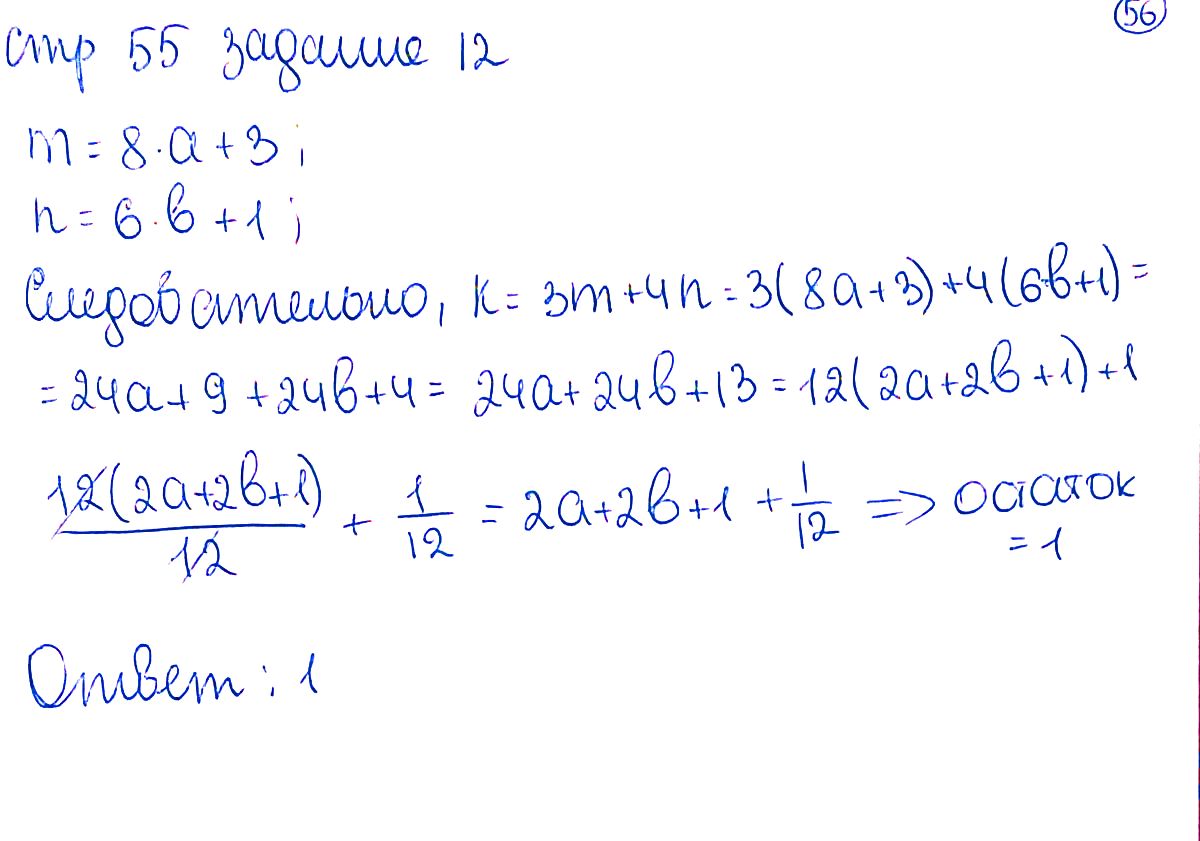 56
стр 55 задание 12
m = 8·a + 3;
n = 6·b + 1;
Следовательно, k = 3m + 4n = 3(8a + 3) + 4(6·b + 1) =
= 24a + 9 + 24b + 4 = 24a + 24b + 13 = 12(2a + 2b + 1) + 1
12(2a + 2b + 1)/12 + 1/12 = 2a + 2b + 1 + 1/12 => остаток
= 1
Ответ: 1